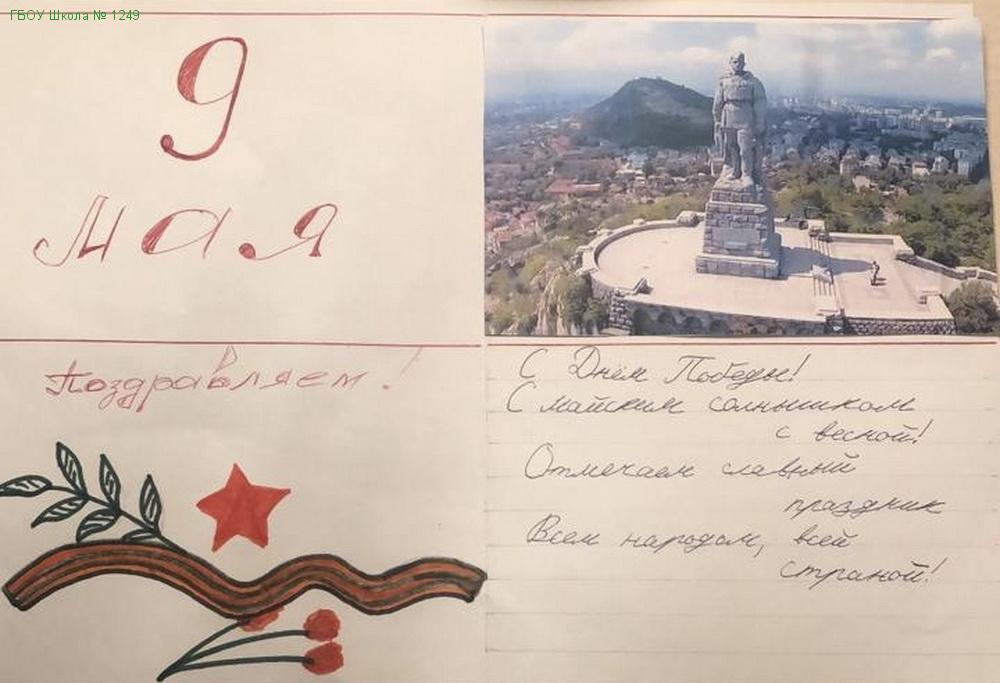 ГБОУ Школа № 1249
9
мая
Поздравляем!
С Днём Победы!
С майским солнышком
с весной!
Отмечаем славный
праздник
Всем народом, всей
страной!